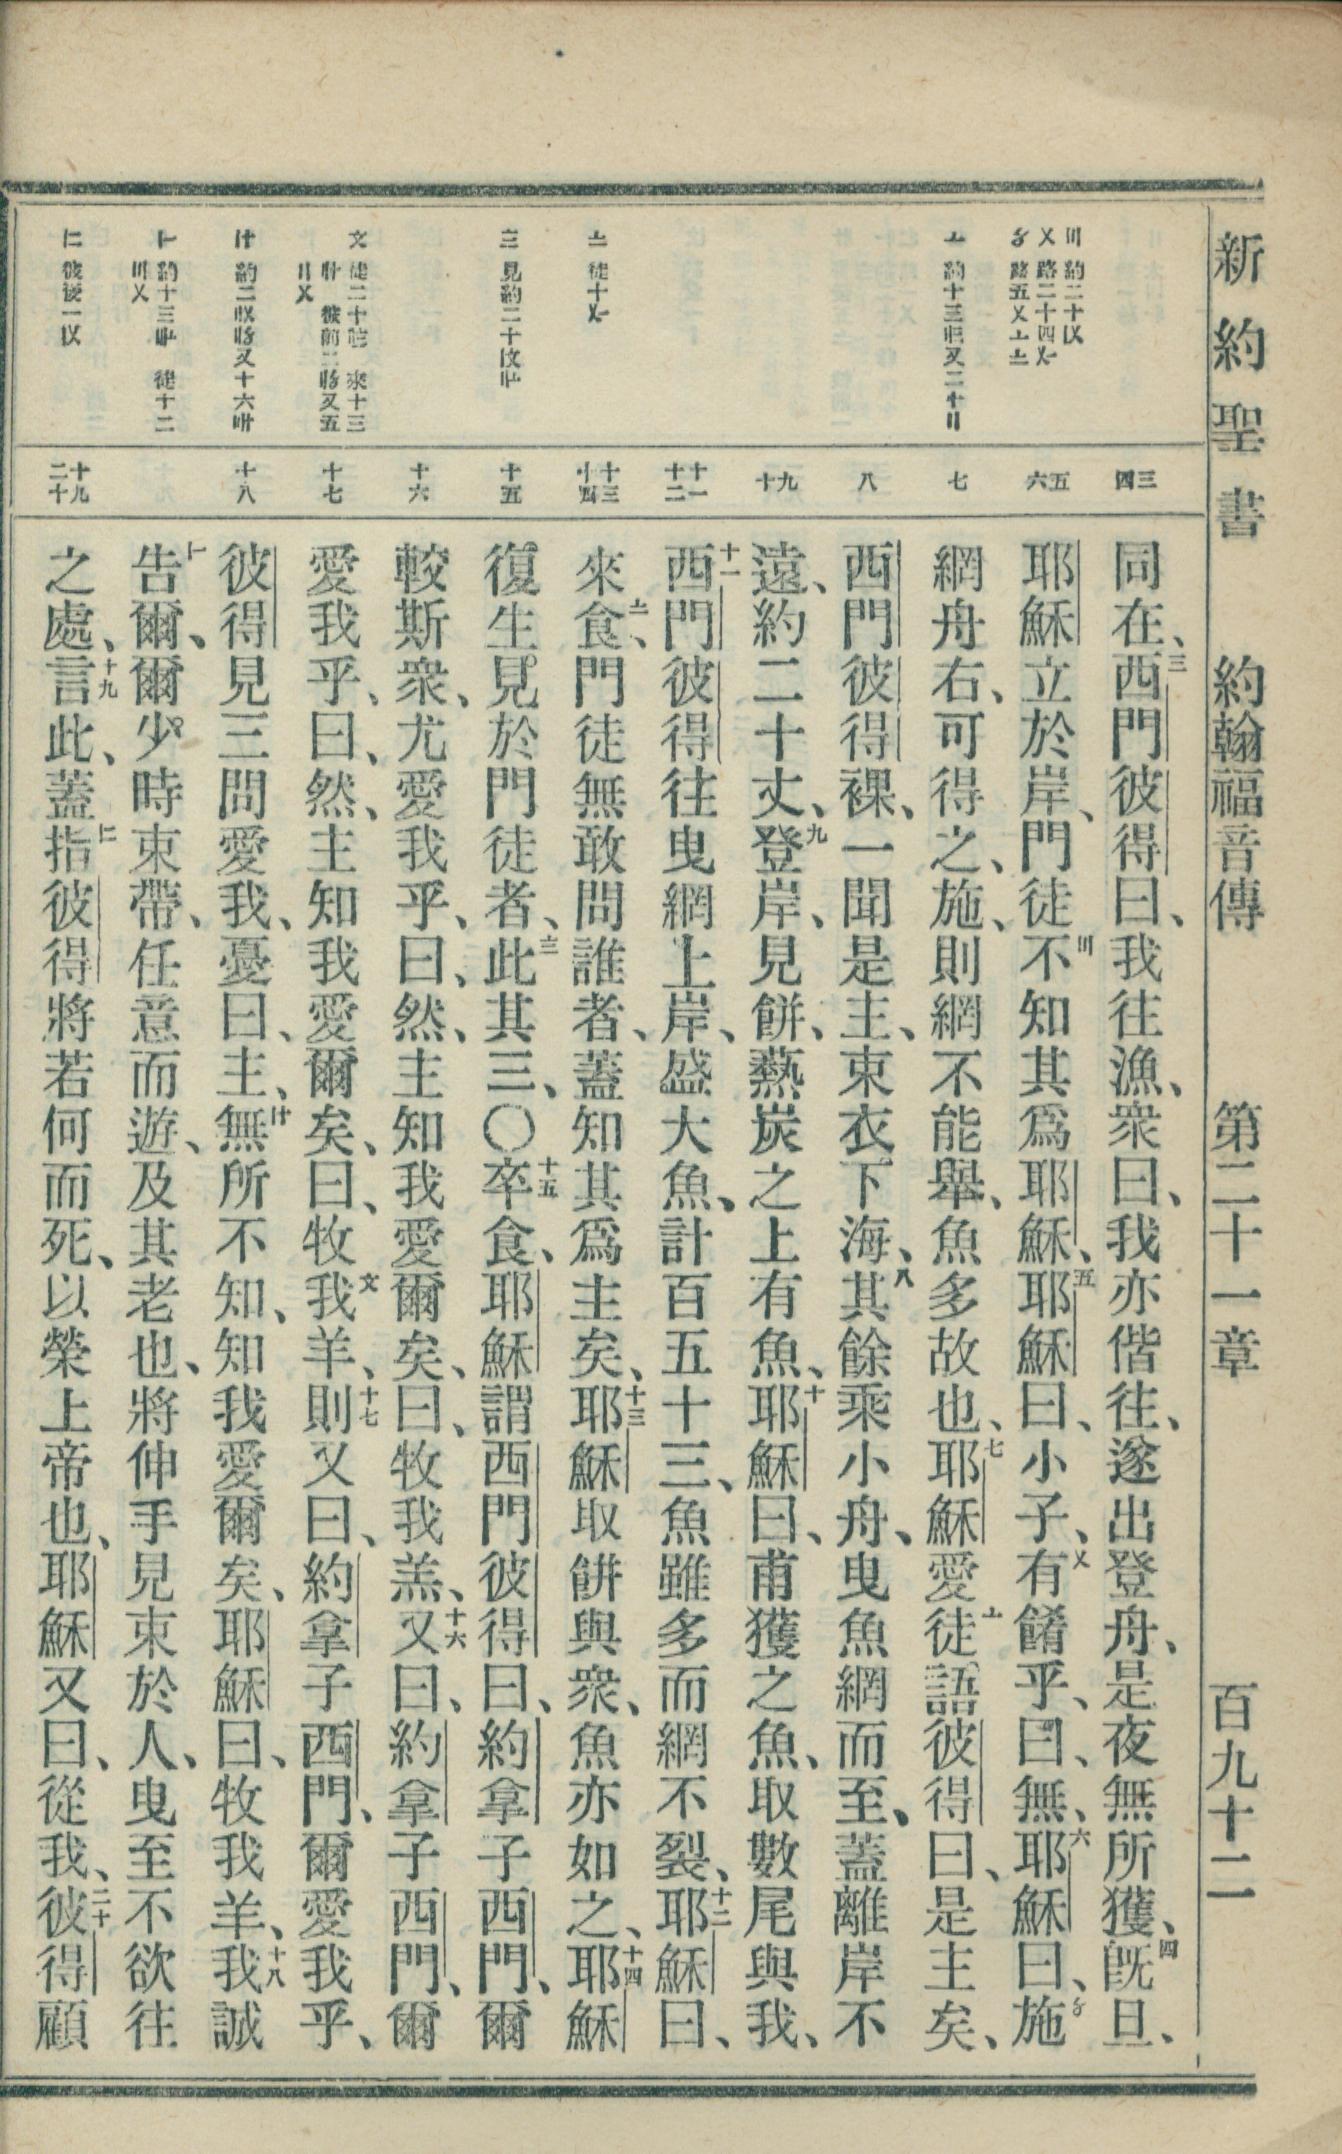 新約聖書 約翰福音傳 第二十一章 百九十二
三四
五六
七
八
九十
十一十二
十三十四
十五
十六
十七
十八
十九二十
同在、三西門彼得曰、我往漁、衆曰、我亦偕往、遂出登舟、是夜無所獲、四旣旦、
耶穌立於岸、門徒不知其爲耶穌、五耶穌曰、小子、有餚乎、曰、無、六耶穌曰、施
網舟右、可得之、施、則網不能舉、魚多故也、七耶穌愛徒語彼得曰、是主矣、
西門彼得裸、一聞是主、束衣下海、八其餘乘小舟、曳魚網而至、蓋離岸不
遠、約二十丈、九登岸、見餅、爇炭之上有魚、十耶穌曰、甫獲之魚、取數尾與我、
十一西門彼得往曳網上岸、盛大魚、計百五十三、魚雖多而網不裂、十二耶穌曰、
來食、門徒無敢問誰者、蓋知其爲主矣、十三耶穌取餅與衆、魚亦如之、十四耶穌
復生見於門徒者、此其三、〇十五卒食、耶穌謂西門彼得曰、約拿子西門、爾
較斯衆、尤愛我乎、曰、然、主知我愛爾矣、曰、牧我羔、十六又曰、約拿子西門、爾
愛我乎、曰、然、主知我愛爾矣、曰、牧我羊、十七則又曰、約拿子西門、爾愛我乎、
彼得見三問愛我、憂曰、主、無所不知、知我愛爾矣、耶穌曰、牧我羊、十八我誠
告爾、爾少時束帶、任意而遊、及其老也、將伸手見束於人、曳至不欲往
之處、十九言此、蓋指彼得將若何而死、以榮上帝也、耶穌又曰、從我、二十彼得顧